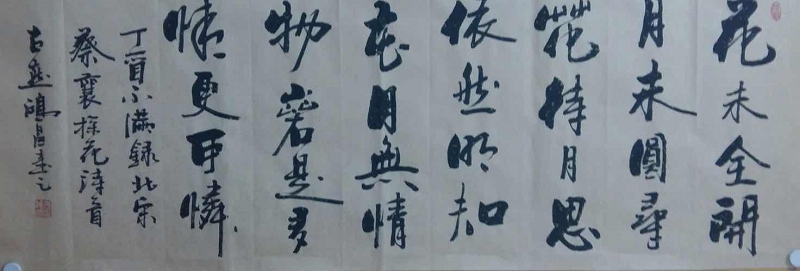 花未全開
月未圓尋
花待月思
依然明知
花月無情
物若是多
情更可憐
丁酉小滿錄北宋
蔡襄探花詩首
古